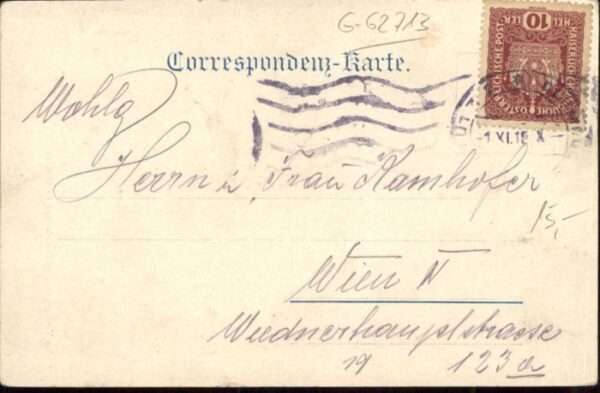 G-62713
Correspondenz-Karte.
10
HELLER
HEL
KAISERLICHE
ÖSTERREICHISCHE POST
-1 XI.16 X
Wohlg
Herrn u. Frau Ramhofer
15,-
Wien IV
Wiednerhauptstrasse
19 123a